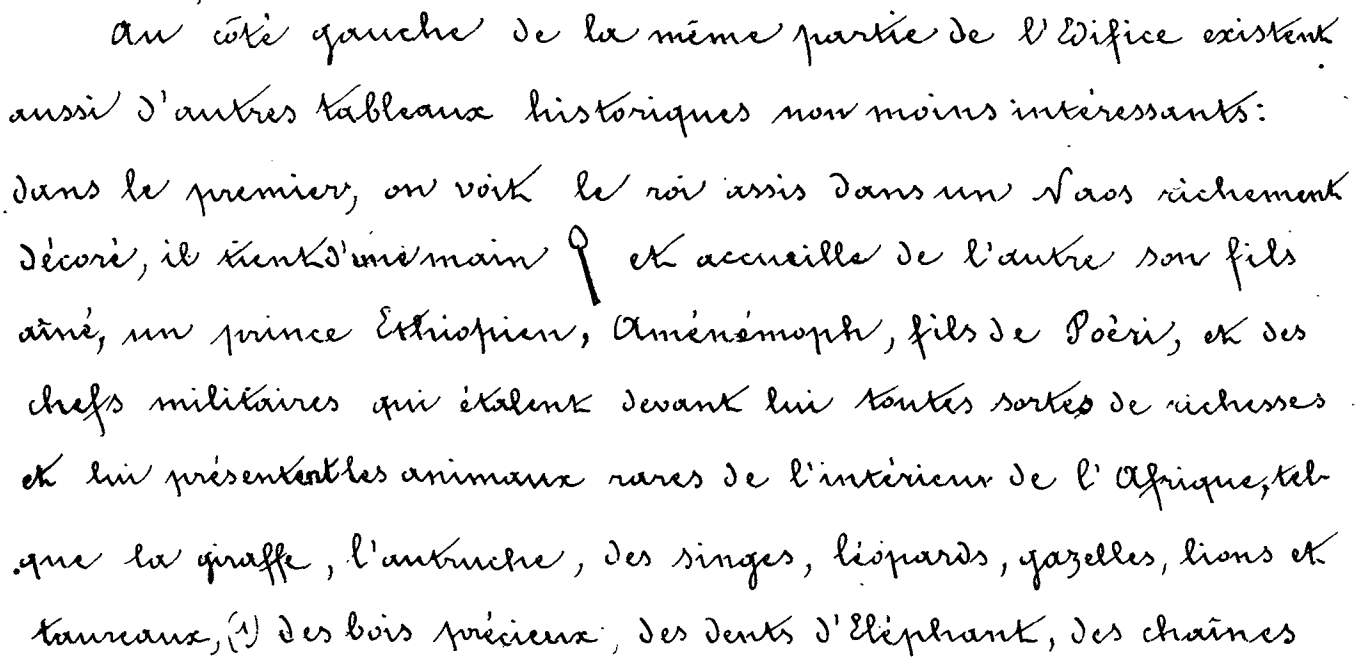 au côté gauche de la même partie de l'Edifice existent
aussi d'autres tableaux historiques non moins intéressants:
dans le premier, on voit le roi assis dans un Naos richement
décoré, il tient d'une main et accueille de l'autre son fils
aîné, un prince Ethiopien, Aménémoph, fils de Poèri, et des
chefs militaires qui étalent devant lui toutes sortes de richesses
et lui présentent les animaux rares de l'intérieur de l'Afrique, tel
que la giraffe, l'autruche, des singes, léopards, gazelles, lions et
taureaux, (1) des bois précieux, des dents d'Eléphant, des chaînes